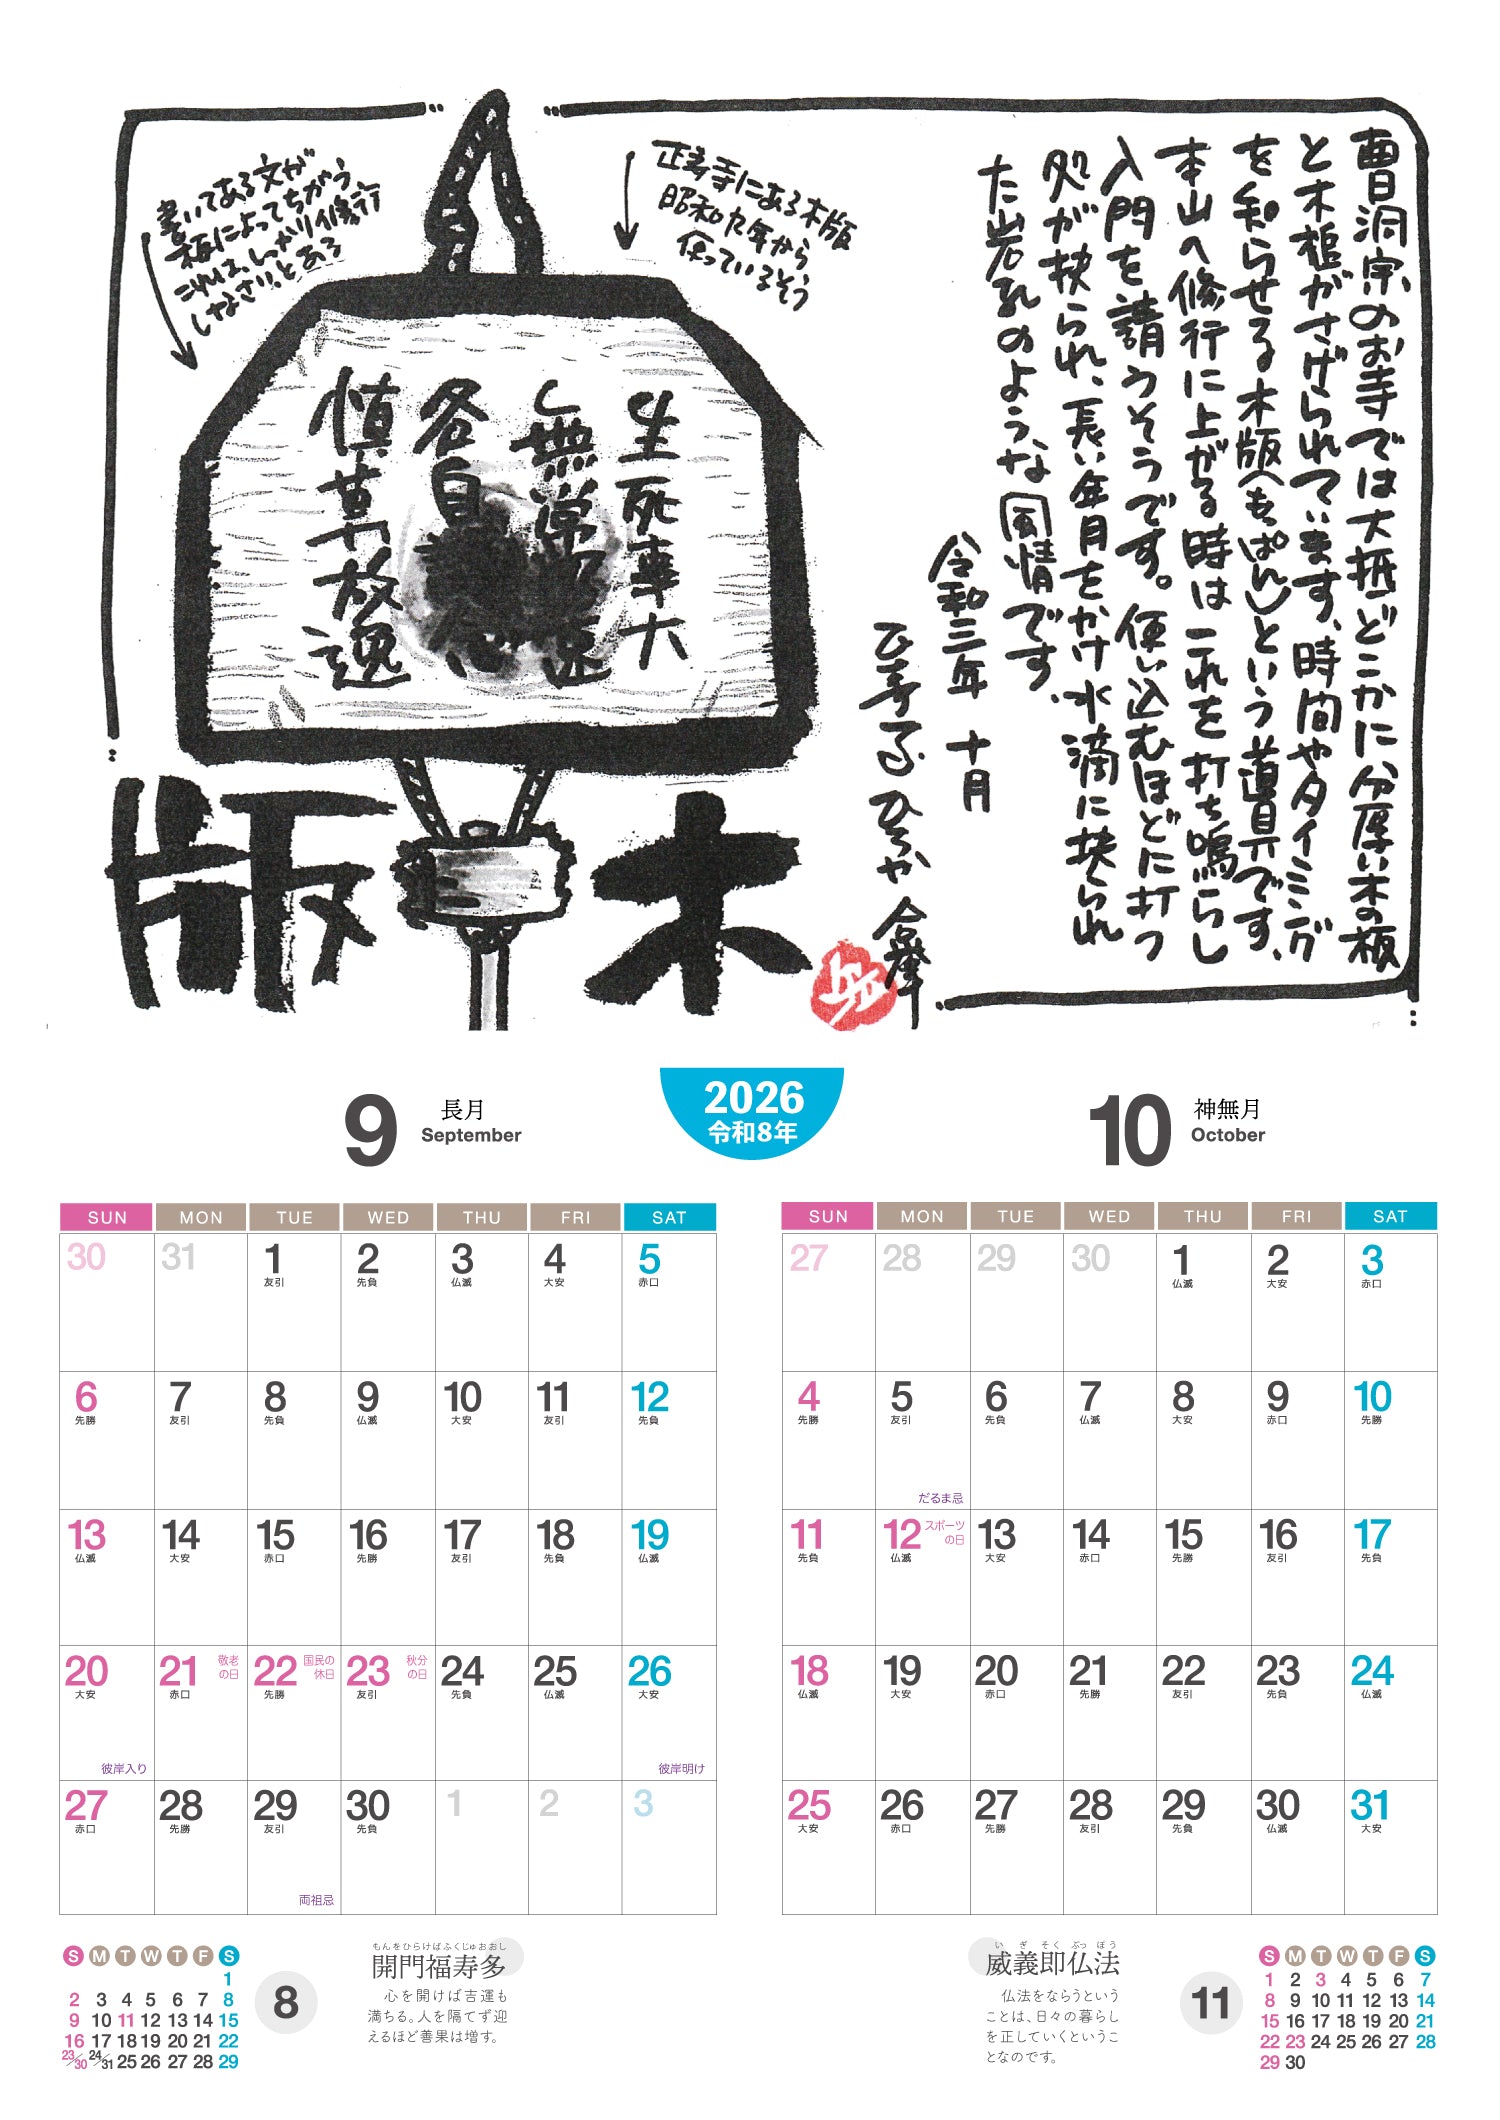 曹洞宗のお寺では大抵どこかに分厚い木の板
と木槌がさげられています。時間やタイミング
を知らせる木版(もっぱん)という道具です。
本山へ修行に上がる時はこれを打ち鳴らし
入門を請うそうです。使い込むほどに打つ
処が抉られ、長い年月をかけ水滴に抉られ
た岩孔のような風情です。
令和三年 十月
合掌
正寿寺にある木版
昭和九年から
使っているそう
書いてある文が
板によってちがう
これは、しっかり修行
しなさい。とある
生死事大
無常迅速
各自
慎莫放逸
木版
2026
令和8年
9
長月
September
SUN MON TUE WED THU FRI SAT
30 31 1 2 3 4 5
友引 先負 仏滅 大安 赤口
6 7 8 9 10 11 12
先勝 友引 先負 仏滅 大安 友引 先負
13 14 15 16 17 18 19
仏滅 大安 赤口 先勝 友引 先負 仏滅
20 21 敬老の日 22 国民の休日 23 秋分の日 24 25 26
大安 赤口 先勝 友引 先負 仏滅 大安
彼岸入り 彼岸明け
27 28 29 30 1 2 3
赤口 先勝 友引 先負
両祖忌
10
神無月
October
SUN MON TUE WED THU FRI SAT
27 28 29 30 1 2 3
仏滅 大安 赤口
4 5 6 7 8 9 10
先勝 友引 先負 仏滅 大安 赤口 先勝
だるま忌
11 12 スポーツの日 13 14 15 16 17
先負 仏滅 大安 赤口 先勝 友引 先負
18 19 20 21 22 23 24
仏滅 大安 赤口 先勝 友引 先負 仏滅
25 26 27 28 29 30 31
大安 赤口 先勝 友引 先負 仏滅 大安
S M T W T F S
1
2 3 4 5 6 7 8
9 10 11 12 13 14 15
16 17 18 19 20 21 22
23/30 24/31 25 26 27 28 29
8
もんをひらけばふくじゅおおし
開門福寿多
心を開けば吉運も
満ちる。人を隔てず迎
えるほど善果は増す。
いぎそくぶっぽう
威義即仏法
仏法をならうという
ことは、日々の暮らし
を正していくというこ
となのです。
11
S M T W T F S
1 2 3 4 5 6 7
8 9 10 11 12 13 14
15 16 17 18 19 20 21
22 23 24 25 26 27 28
29 30